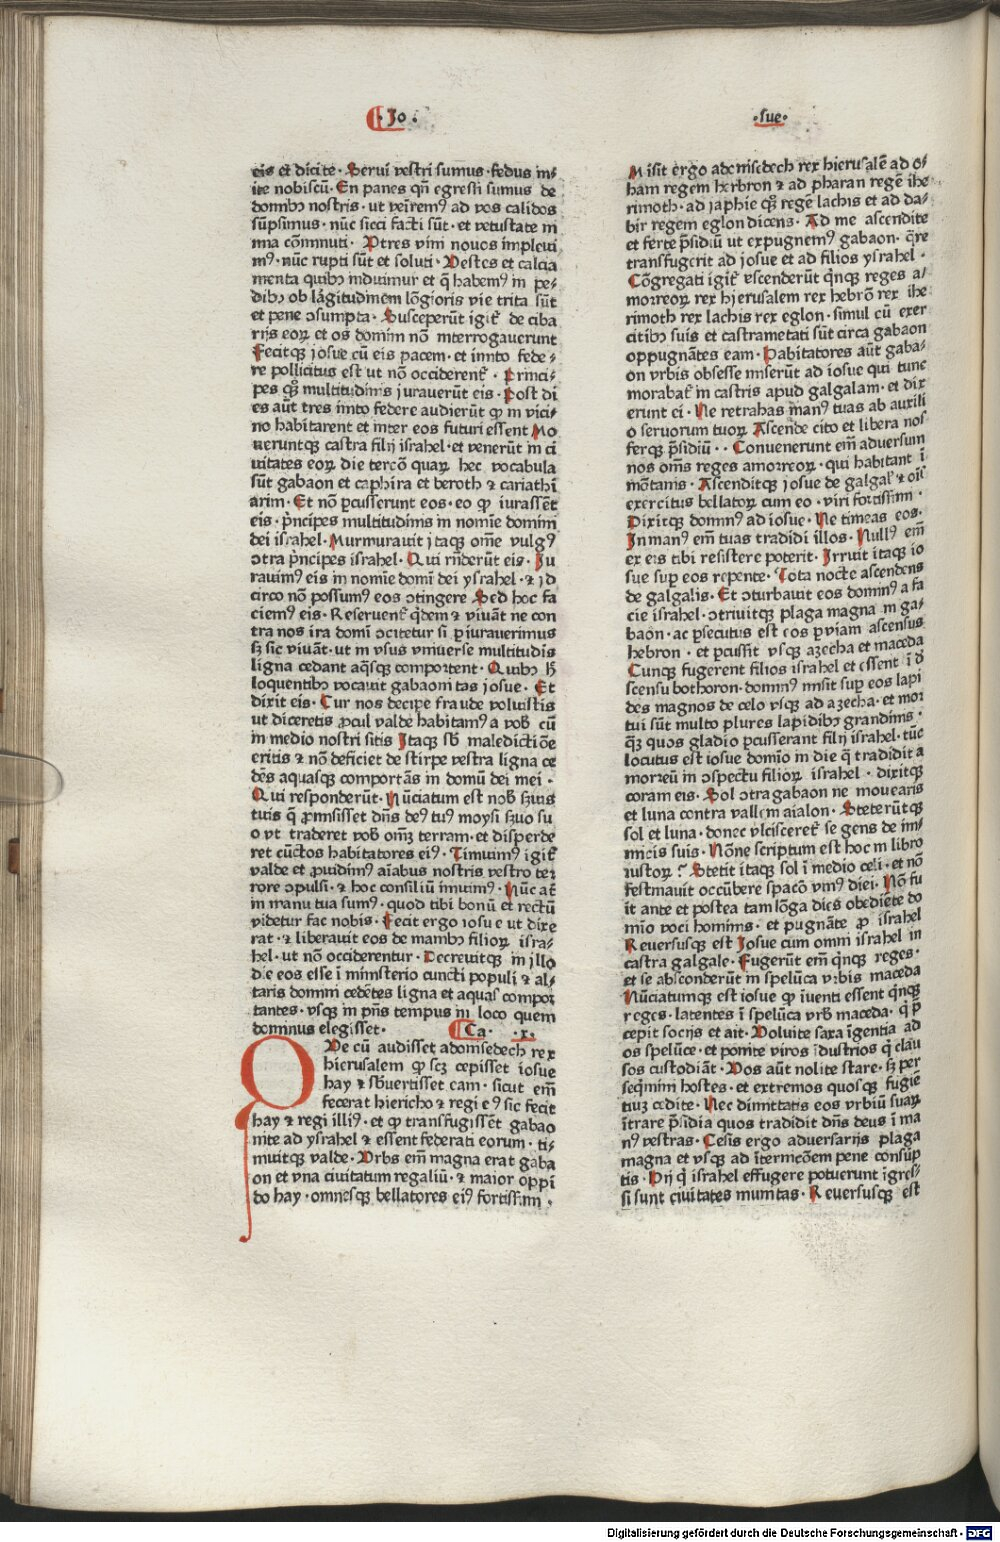 · Jo ·
·sue·
eis et dicite· Serui vestri sumus·fedus in⸗
ite nobiscū· En panes qñ egressi sumus de
domibꝫ nostris·ut veiremꝰ ad vos calidos
sūpsimus·nūc sicci facti sūt·et vetustate ni
mia cōminuti· Vtres vini nouos impleui
mꝰ·nūc rupti sūt et soluti· Vestes et calcia
menta quibꝫ induimur et q̄ habemꝰ in pe⸗
dibꝫ ob lāgitudinem lōgioris vie trita sūt
et pene ↄsumpta· Susceperūt igit̄ de ciba
rijs eoꝝ et os domini nō interrogauerunt
Fecitqꝫ josue cū eis pacem·et innito fede⸗
re pollicitus est ut nō occiderent̄· Princi⸗
pes qꝫ multitudinis jurauerūt eis· Post di
es aūt tres innto federe audierūt ꝙ in vici⸗
no habitarent et inter eos futuri essent Mo
ueruntqꝫ castra filij israhel·et venerūt in ci
uitates eoꝝ die tercō quaꝝ hec vocabula
sūt gabaon et caphira et beroth & cariathi
arim· Et nō ꝑcusserunt eos·eo ꝙ iurassēt
eis·p̄ncipes multitudinis in nomie domini
dei israhel· Murmurauit jtaqꝫ om̄e vulgꝰ
ↄtra p̄ncipes israhel· Qui rn̄derūt eis· Ju
rauimꝰ eis in nomīe domī dei ysrahel·& jd
circo nō possumꝰ eos ↄtingere Sed hoc fa
ciemꝰ eis· Reseruent̄ q̄dem & viuāt ne con
tra nos ira domī ↄcitetur si ꝑiurauerimus
sꝫ sic viuāt·ut in vsus vniuerse multitudis
ligna cedant aq̄sqꝫ comportent· Quibꝫ h̄
loquentibꝫ vocauit gabaonitas josue· Et
dixit eis· Cur nos decipe fraude voluistis
ut diceretis ꝓcul valde habitamꝰ a vob̄ cū
in medio nostri sitis Itaqꝫ sb̄ maledictiōe
eritis & nō deficiet de stirpe vestra ligna ce
dēs aquasqꝫ comportās in domū dei mei·
Qui responderūt· Nūciatum est nob̄ s̄uis
tuis q̄ ꝓmisisset dn̄s deꝰ tuꝰ moysi s̄uo su
o vt traderet vob̄ om̄ꝫ terram·et disperde
ret cūctos habitatores eiꝰ· Timuimꝰ igit̄
valde et ꝓuidimꝰ aīabus nostris vestro ter
rore ↄpulsi·& hoc consiliū inuimꝰ· Nūc at̄
in manu tua sumꝰ·quod tibi bonū et rectū
videtur fac nobis· Fecit ergo iosue ut dixe
rat·& liberauit eos de manibꝫ filioꝝ isra⸗
hel·ut nō occiderentur· Decreuitqꝫ in jllo
die eos esse ī ministerio cuncti populi & al⸗
taris domini cedētes ligna et aquas compor
tantes·vsqꝫ in pn̄s tempus in loco quem
dominus elegisset·
Ca· ·x·
Qve cū audisset adonisedech rex
hierusalem ꝙ scꝫ cepisset iosue
hay & sb̄uertisset eam·sicut em̄
fecerat hiericho & regi eꝰ sic fecit
hay & regi illiꝰ·et ꝙ transfugissēt gabao
nite ad ysrahel & essent federati eorum·ti⸗
muitqꝫ valde· Vrbs em̄ magna erat gaba
on et vna ciuitatum regaliū·& maior oppi
do hay·omnesqꝫ bellatores eiꝰ fortissimi·
Misit ergo adonisedech rex hierusalē ad o⸗
ham regem hebron & ad pharan regē ihe
rimoth·ad japhie qꝫ regē lachis et ad da⸗
bir regem eglon dicens· Ad me ascendite
et ferte p̄sidiū ut expugnemꝰ gabaon·q̄re
transfugerit ad josue et ad filios ysrahel·
Cōgregati igit̄ vscenderūt q̄nqꝫ reges a⸗
morreoꝝ rex hierusalem rex hebrō rex ihe
rimoth rex lachis rex eglon·simul cū exer
citibꝫ suis et castrametati sūt circa gabaon
oppugnātes eam· Habitatores aūt gaba⸗
on vrbis obsesse miserūt ad iosue qui tunc
morabat̄ in castris apud galgalam·et dix
erunt ei· Ne retrahas manꝰ tuas ab auxili
o seruorum tuoꝝ Ascende cito et libera nos
ferqꝫ p̄sidiū·· Conuenerunt em̄ aduersum
nos om̄s reges amorreoꝝ·qui habitant ī
mōtanis· Ascenditqꝫ josue de galgal̄ & oīs
exercitus bellatoꝝ cum eo·viri fortissimi·
Dixitqꝫ dominꝰ ad iosue· Ne timeas eos·
In manꝰ em̄ tuas tradidi illos· Nullꝰ em̄
ex eis tibi resistere poterit· Irruit itaqꝫ io
sue suꝑ eos repente· Tota nocte ascendens
de galgalis· Et ↄturbauit eos dominꝰ a fa
cie israhel·ↄtriuitqꝫ plaga magna in ga⸗
baon·ac ꝑsecutus est eos ꝑ viam ascensus
hebron·et ꝑcussit vsqꝫ azecha et maceda
Cunqꝫ fugerent filios israhel et essent ī d̄
scensu bothoron·dominꝰ misit suꝑ eos lapi
des magnos de celo vsqꝫ ad azecha·et mor
tui sūt multo plures lapidibꝫ grandinis·
q̄ꝫ quos gladio ꝑcusserant filij israhel·tūc
locutus est iosue domīo in die q̄ tradidit a
morreū in ↄspectu filioꝝ israhel·dixitqꝫ
coram eis· Sol ↄtra gabaon ne mouearis
et luna contra vallem aialon· Steterūtqꝫ
sol et luna·donec vlcisceret̄ se gens de ini⸗
micis suis· Nōne scriptum est hoc in libro
iustoꝝ? Stetit itaqꝫ sol ī medio celi·et nō
festinauit occūbere spacō vniꝰ diei· Nō fu
it ante et postea tam lōga dies obediēte do
mīo voci hominis·et pugnāte ꝓ israhel
Reuersusqꝫ est Josue cum omni israhel in
castra galgale· Fugerūt em̄ q̄nqꝫ reges·
et se absconderūt in spelūca vrbis maceda
Nūciatumqꝫ est iosue ꝙ īuenti essent q̄nqꝫ
reges·latentes ī spelūca vrb̄ maceda·q̄ p̄
cepit socijs et ait· Voluite saxa īgentia ad
os spelūce·et ponite viros īdustrios q̄ clau
sos custodiāt· Vos aūt nolite stare·sꝫ per
seq̄mini hostes·et extremos quosqꝫ fugiē
tiuꝫ cedite· Nec dimittatis eos vrbiū suaꝝ
ītrare p̄sidia quos tradidit dn̄s deus ī ma
nꝰ vestras· Cesis ergo aduersarijs plaga
magna et vsqꝫ ad īternecōem pene consūp
tis· Hij q̄ israhel effugere potuerunt īgres⸗
si sunt ciuitates munitas· Reuersusqꝫ est
Digitalisierung gefördert durch die Deutsche Forschungsgemeinschaft · DFG